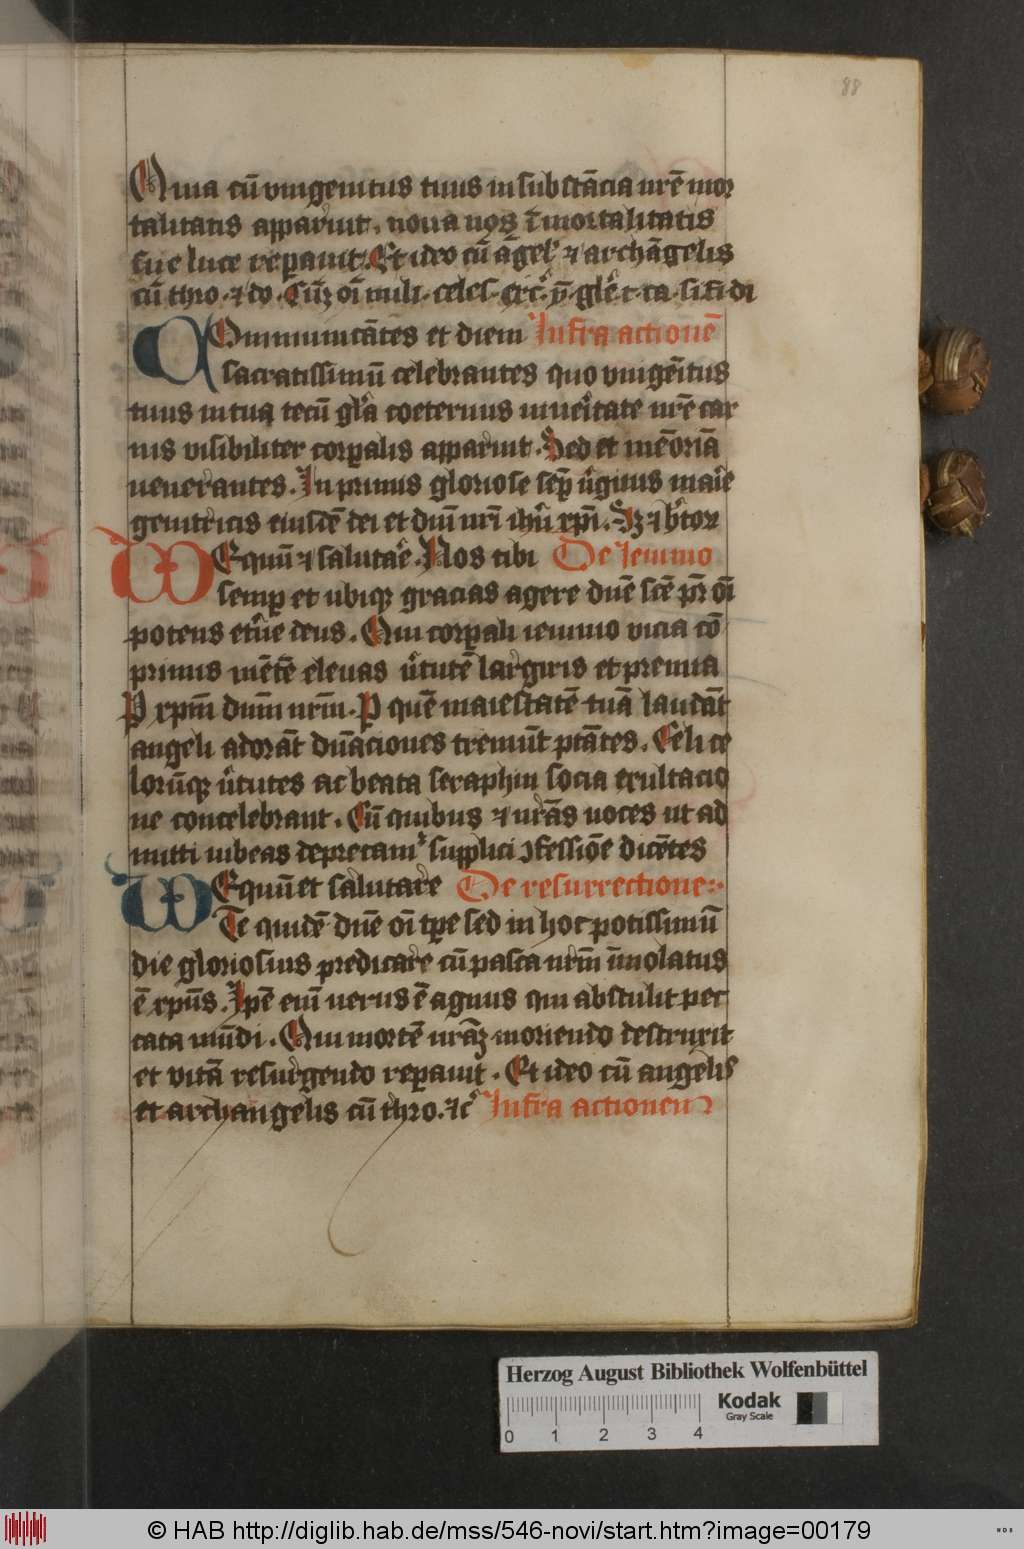 88
Quia cū vnigenitus tuus in substācia nr̄e mor
talitatis apparuit. noua nos ī mortalitatis
sue luce repauit. Et ideo cū āgel' ⁊ archāgelis
cū thro. ⁊ do. Cūqꝫ oī mili. celes. exc̄. ẏ. gl̄e t. ca. si fi di
Ommunicātes et diem Infra actionē
sacratissimū celebrantes quo vnigēitus
tuus in tua tecū gl̄a coeternus in ueītate nr̄e car
nis visibiliter corꝑalis apparuit. Sed et mēoriā
uenerantes. In primis gloriose semꝑ v̄ginis maīe
genitricis eiusdē dei et dn̄i nr̄i ih̄u xp̄i. Sꝫ ⁊ b̄tor
VEquū ⁊ salutar̄e. Nos tibi De Ieiunio
semꝑ et ubiqꝫ gracias agere dn̄e scē pr̄ oī
potens et̄ne deus. Qui corꝑali ieiunio vicia cō
primis mētē eleuas v̄tutē largiris et premia
P xp̄m dn̄m nr̄m. P quē maiestatē tuā laudāt
angeli adorāt dn̄aciones tremūt p̄tātes. Celi ce
lorūqꝫ v̄tutes ac beata seraphin socia exultacio
ne concelebrant. Cū quibus ⁊ nr̄as uoces ut ad
mitti iubeas deprecam' supplici ꝯfessiōe dicētes
VEquū et salutare De resurrectione
Te quidē dn̄e oī tp̄e sed in hoc potissimū
die gloriosius predicare cū pasca nr̄m īmolatus
ē xp̄us. Ip̄e eni uerus ē agnus qui abstulit pec
cata mūdi. Qui mortē nr̄aꝫ moriendo destruxit
et vitā resurgendo reꝑauit. Et ideo cū angelis
et archangelis cū thro. ⁊c̄ Infra actionem
Herzog August Bibliothek Wolfenbüttel
0 1 2 3 4
Kodak
Gray Scale
© HAB http://diglib.hab.de/mss/546-novi/start.htm?image=00179